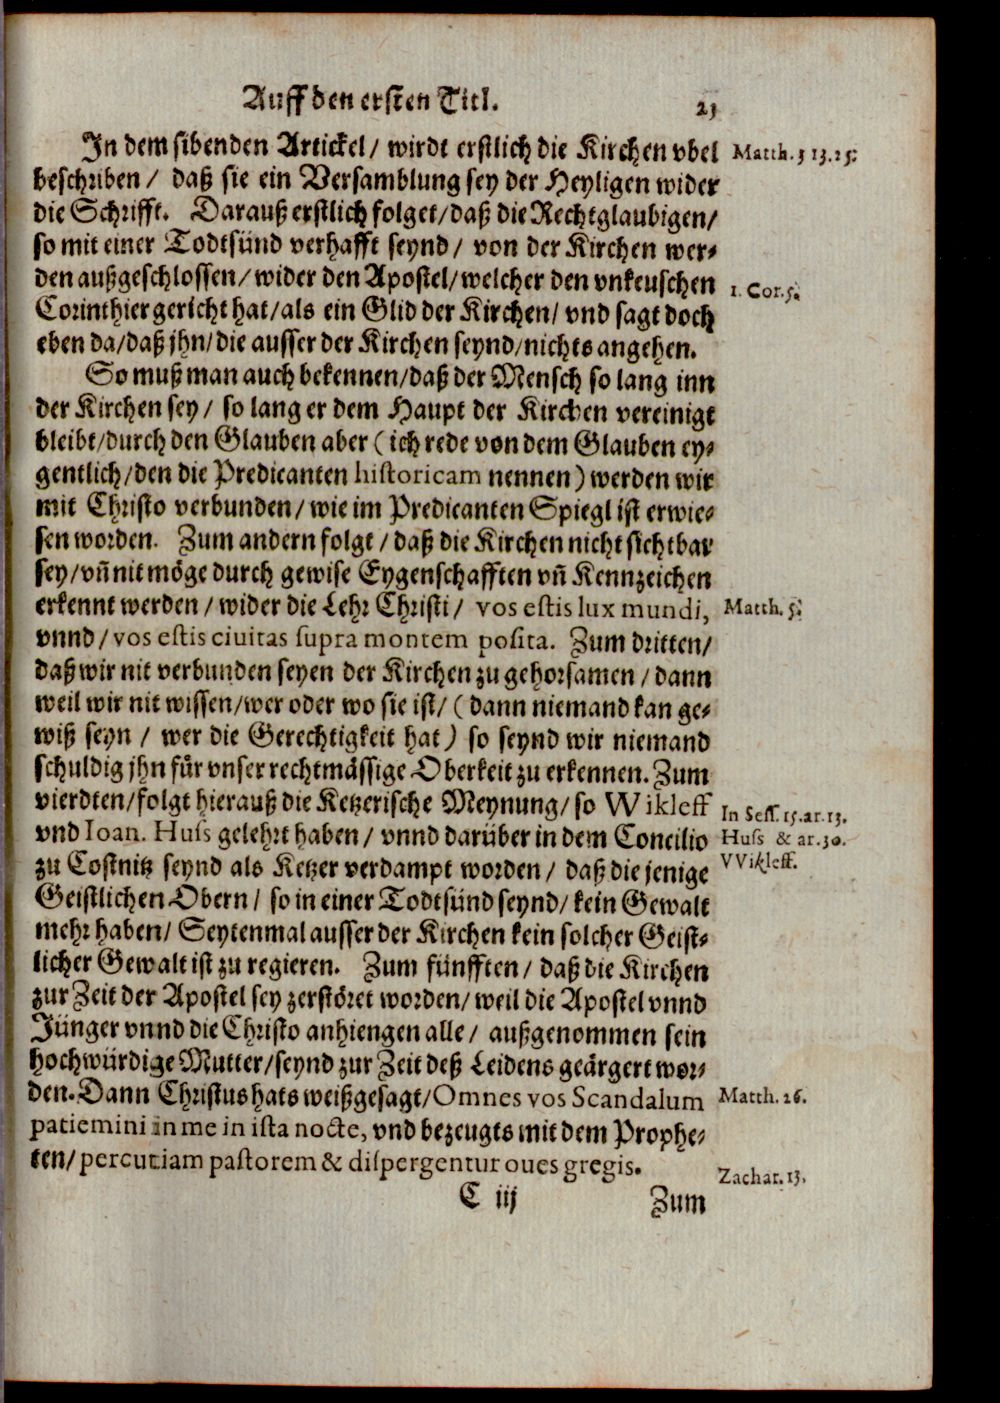 Auff den ersten Titl. 21
In dem sibenden Artickel / wirdt erstlich die Kirchen vbel Matth. 3 13. 25.
beschriben / daß sie ein Versamblung sey der Heyligen wider
die Schrifft. Darauß erstlich folget / daß die Rechtglaubigen /
so mit einer Todtsünd verhafft seynd / von der Kirchen wer-
den außgeschlossen / wider den Apostel / welcher den vnkeuschen 1. Cor. 5.
Corinthier gericht hat / als ein Glid der Kirchen / vnd sagt doch
eben da / daß jhn / die ausser der Kirchen seynd / nichts angehen.
So muß man auch bekennen / daß der Mensch so lang inn
der Kirchen sey / so lang er dem Haupt der Kirchen vereinigt
bleibt / durch den Glauben aber ( ich rede von dem Glauben ey-
gentlich / den die Predicanten historicam nennen ) werden wir
mit Christo verbunden / wie im Predicanten Spiegl ist erwie-
sen worden. Zum andern folgt / daß die Kirchen nicht sichtbar
sey / vñ nit möge durch gewise Eygenschafften vñ Kennzeichen
erkennt werden / wider die Lehr Christi / vos estis lux mundi, Matth. 5.
vnnd / vos estis ciuitas supra montem posita. Zum dritten /
daß wir nit verbunden seyen der Kirchen zu gehorsamen / dann
weil wir nit wissen / wer oder wo sie ist / ( dann niemand kan ge-
wiß seyn / wer die Gerechtigkeit hat ) so seynd wir niemand
schuldig jhn für vnser rechtmässige Oberkeit zu erkennen. Zum
vierdten / folgt hierauß die Ketzerische Meynung / so Wikleff In Sess. 15. ar. 13.
vnd Ioan. Huss gelehrt haben / vnnd darüber in dem Concilio Huss & ar. 30.
zu Costnitz seynd als Ketzer verdampt worden / daß die jenige VVikleff.
Geistlichen Obern / so in einer Todtsünd seynd / kein Gewalt
mehr haben / Seytenmal ausser der Kirchen kein solcher Geist-
licher Gewalt ist zu regieren. Zum fünfften / daß die Kirchen
zur Zeit der Apostel sey zerstöret worden / weil die Apostel vnnd
Jünger vnnd die Christo anhiengen alle / außgenommen sein
hochwürdige Mutter / seynd zur Zeit deß Leidens geärgert wor-
den. Dann Christus hats weißgesagt / Omnes vos Scandalum Matth. 26.
patiemini in me in ista nocte, vnd bezeugts mit dem Prophe-
ten / percutiam pastorem & dispergentur oues gregis. Zachar. 13.
C iij Zum